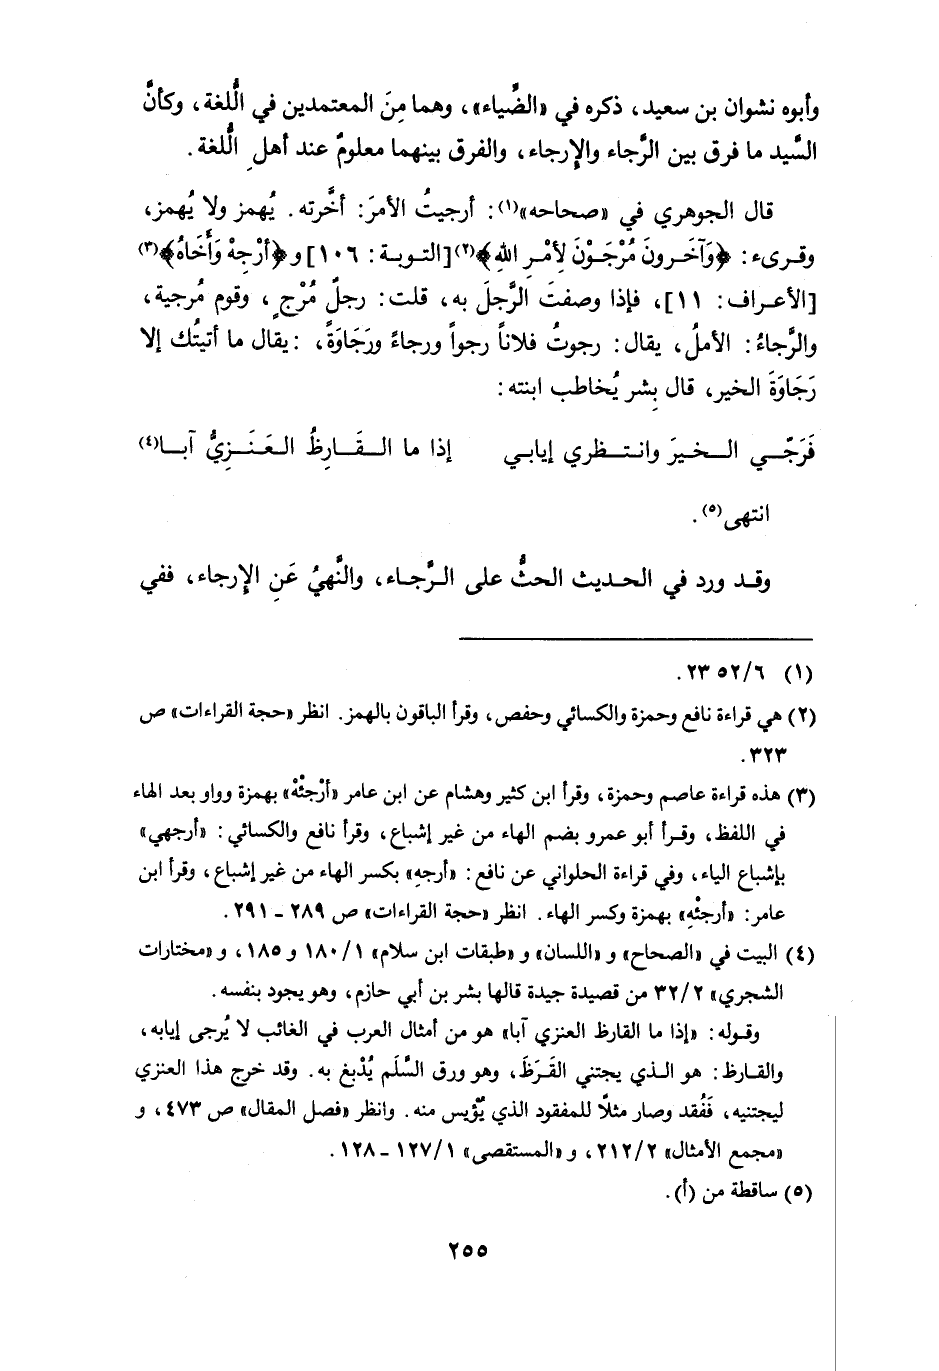 وأبوه نشوان بن سعيد، ذكره في «الضُّياء»، وهما مِنَ المعتمدين في اللُّغة، وكأنَّ
السَّيد ما فرق بين الرَّجاء والإرجاء، والفرق بينهما معلومٌ عند أهلِ اللُّغة.
قال الجوهري في «صحاحه»(١): أرجيتُ الأمرَ: أخَّرته. يُهمز ولا يُهمز،
وقرىء: ﴿وَآخَرونَ مُرْجَوْنَ لِأمْرِ اللهِ﴾(٢) [التوبة: ١٠٦] و﴿أرْجِهْ وَأَخَاهُ﴾(٣)
[الأعراف: ١١]، فإذا وصفتَ الرَّجلَ به، قلت: رجلٌ مُرْجٍ، وقوم مُرجية،
والرَّجاءُ: الأملُ، يقال: رجوتُ فلاناً رجواً ورجاءً ورَجَاوَةً، :يقال ما أتيتُك إلا
رَجَاوَةَ الخير، قال بِشر يُخاطب ابنته:
فَرَجّي الخيرَ وانتظري إيابي إذا ما القَارِظُ العَنَزِيُّ آبا(٤)
انتهى(٥).
وقد ورد في الحديث الحثُّ على الرَّجاء، والنَّهيُ عَنِ الإرجاء، ففي
(١) ٢٣٥٢/٦.
(٢) هي قراءة نافع وحمزة والكسائي وحفص، وقرأ الباقون بالهمز. انظر «حجة القراءات» ص
٣٢٣.
(٣) هذه قراءة عاصم وحمزة، وقرأ ابن كثير وهشام عن ابن عامر «أرْجئْهْ» بهمزة وواو بعد الهاء
في اللفظ، وقرأ أبو عمرو بضم الهاء من غير إشباع، وقرأ نافع والكسائي: «أرجهي»
بإشباع الياء، وفي قراءة الحلواني عن نافع: «أرجهِ» بكسر الهاء من غير إشباع، وقرأ ابن
عامر: «أرجئْهِ» بهمزة وكسر الهاء. انظر «حجة القراءات» ص ٢٨٩ - ٢٩١.
(٤) البيت في «الصحاح» و«اللسان» و«طبقات ابن سلام» ١/ ١٨٠ و١٨٥، و«مختارات
الشجري» ٣٢/٢ من قصيدة جيدة قالها بشر بن أبي حازم، وهو يجود بنفسه.
وقوله: «إذا ما القارظ العنزي آبا» هو من أمثال العرب في الغائب لا يُرجى إيابه،
والقارظ: هو الذي يجتني القَرَظَ، وهو ورق السَّلَم يُدْبغ به. وقد خرج هذا العنزي
ليجتنيه، فَفُقد وصار مثلاً للمفقود الذي يُؤيس منه. وانظر «فصل المقال» ص ٤٧٣، و
«مجمع الأمثال» ٢١٢/٢، و«المستقصى» ١٢٧/١ - ١٢٨.
(٥) ساقطة من (أ).
٢٥٥